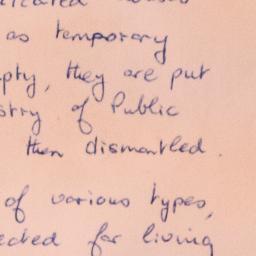 as temporary
they are put
of Public
then dismantled.
of various types,
for living